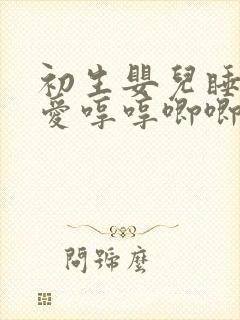 初生嬰兒睡
愛哼哼唧唧
問號麼